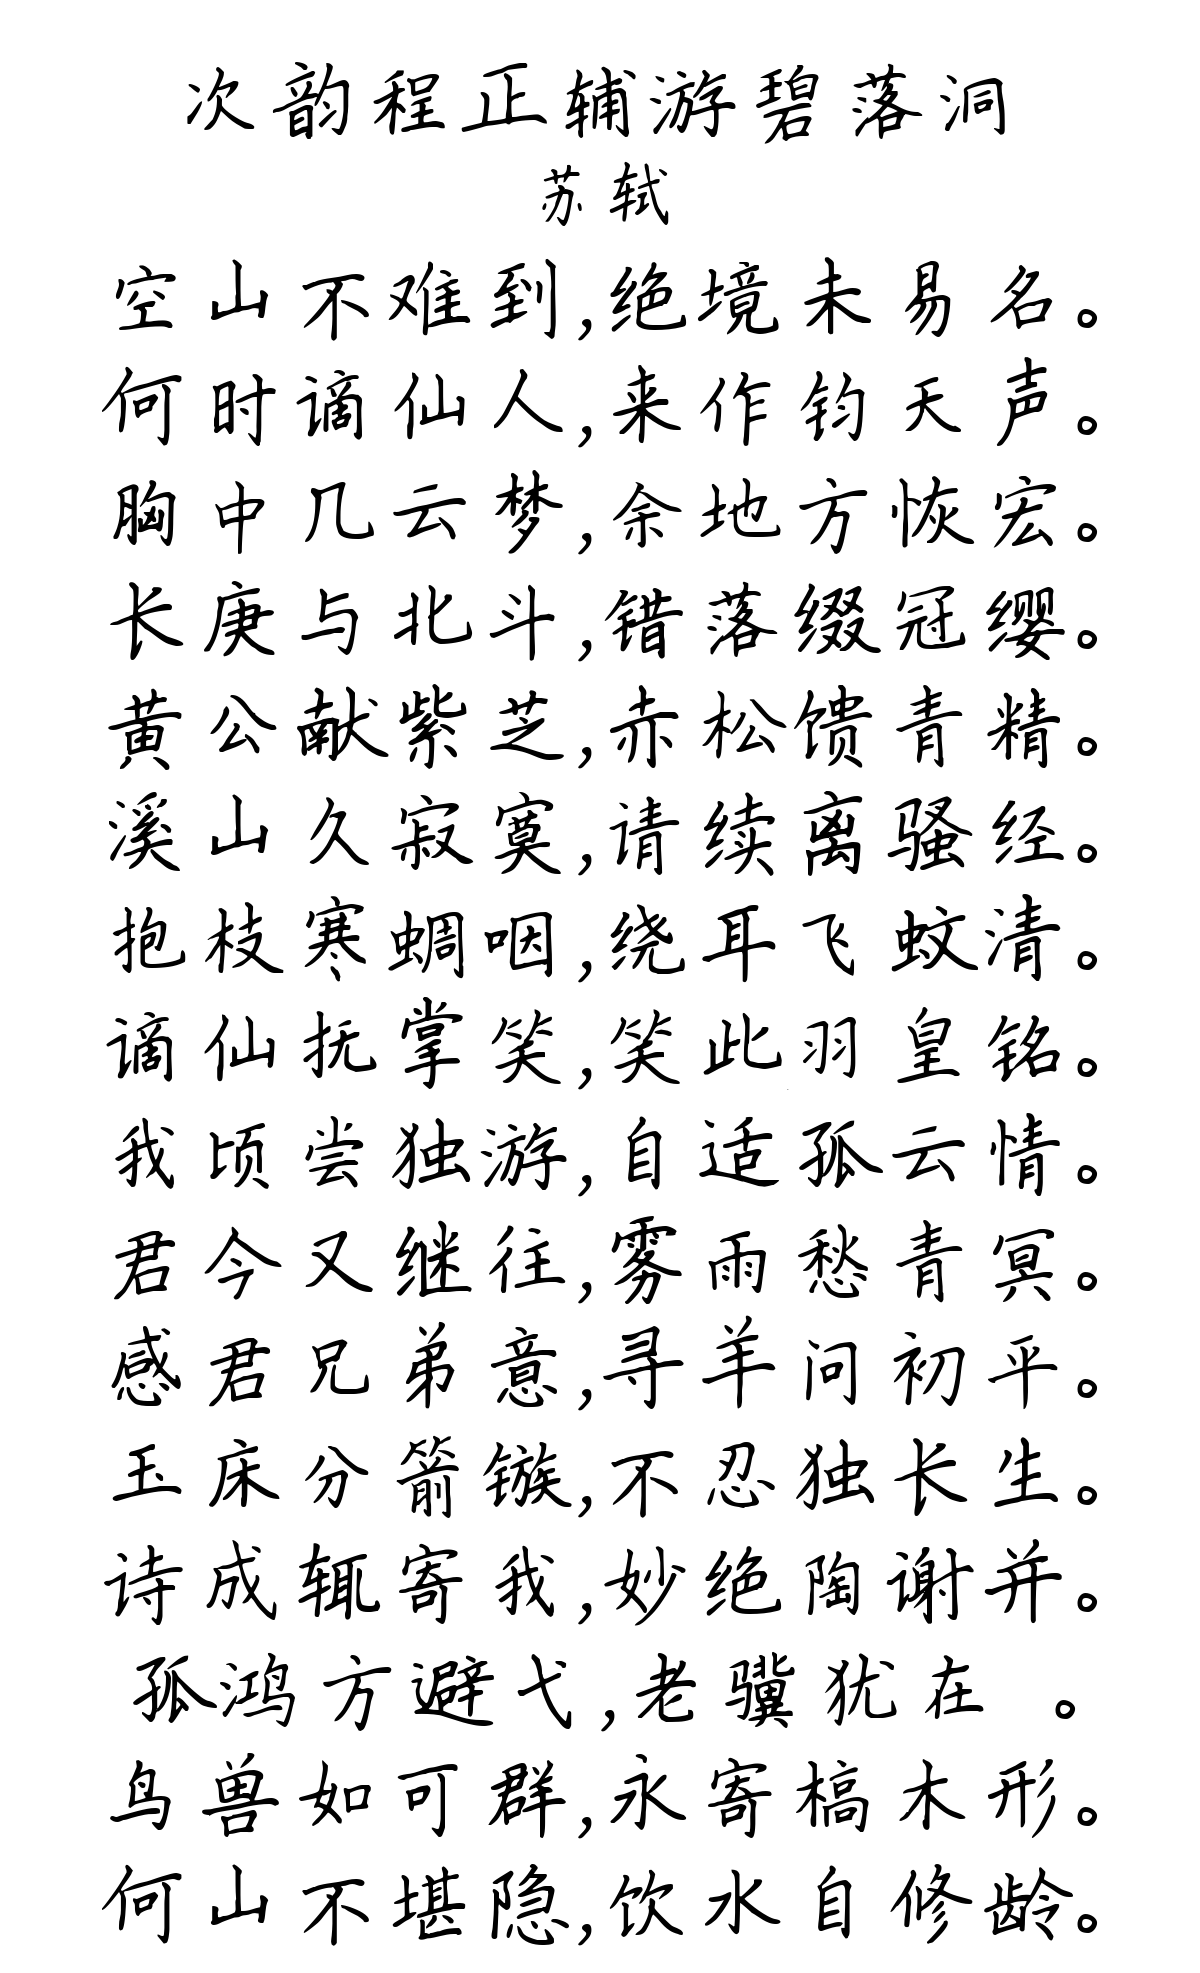 次韵程正辅游碧落洞
苏轼
空山不难到,绝境未易名。
何时谪仙人,来作钧天声。
胸中几云梦,余地方恢宏。
长庚与北斗,错落缀冠缨。
黄公献紫芝,赤松馈青精。
溪山久寂寞,请续离骚经。
抱枝寒蜩咽,绕耳飞蚊清。
谪仙抚掌笑,笑此羽皇铭。
我顷尝独游,自适孤云情。
君今又继往,雾雨愁青冥。
感君兄弟意,寻羊问初平。
玉床分箭镞,不忍独长生。
诗成辄寄我,妙绝陶谢并。
孤鸿方避弋,老骥犹在 。
鸟兽如可群,永寄槁木形。
何山不堪隐,饮水自修龄。